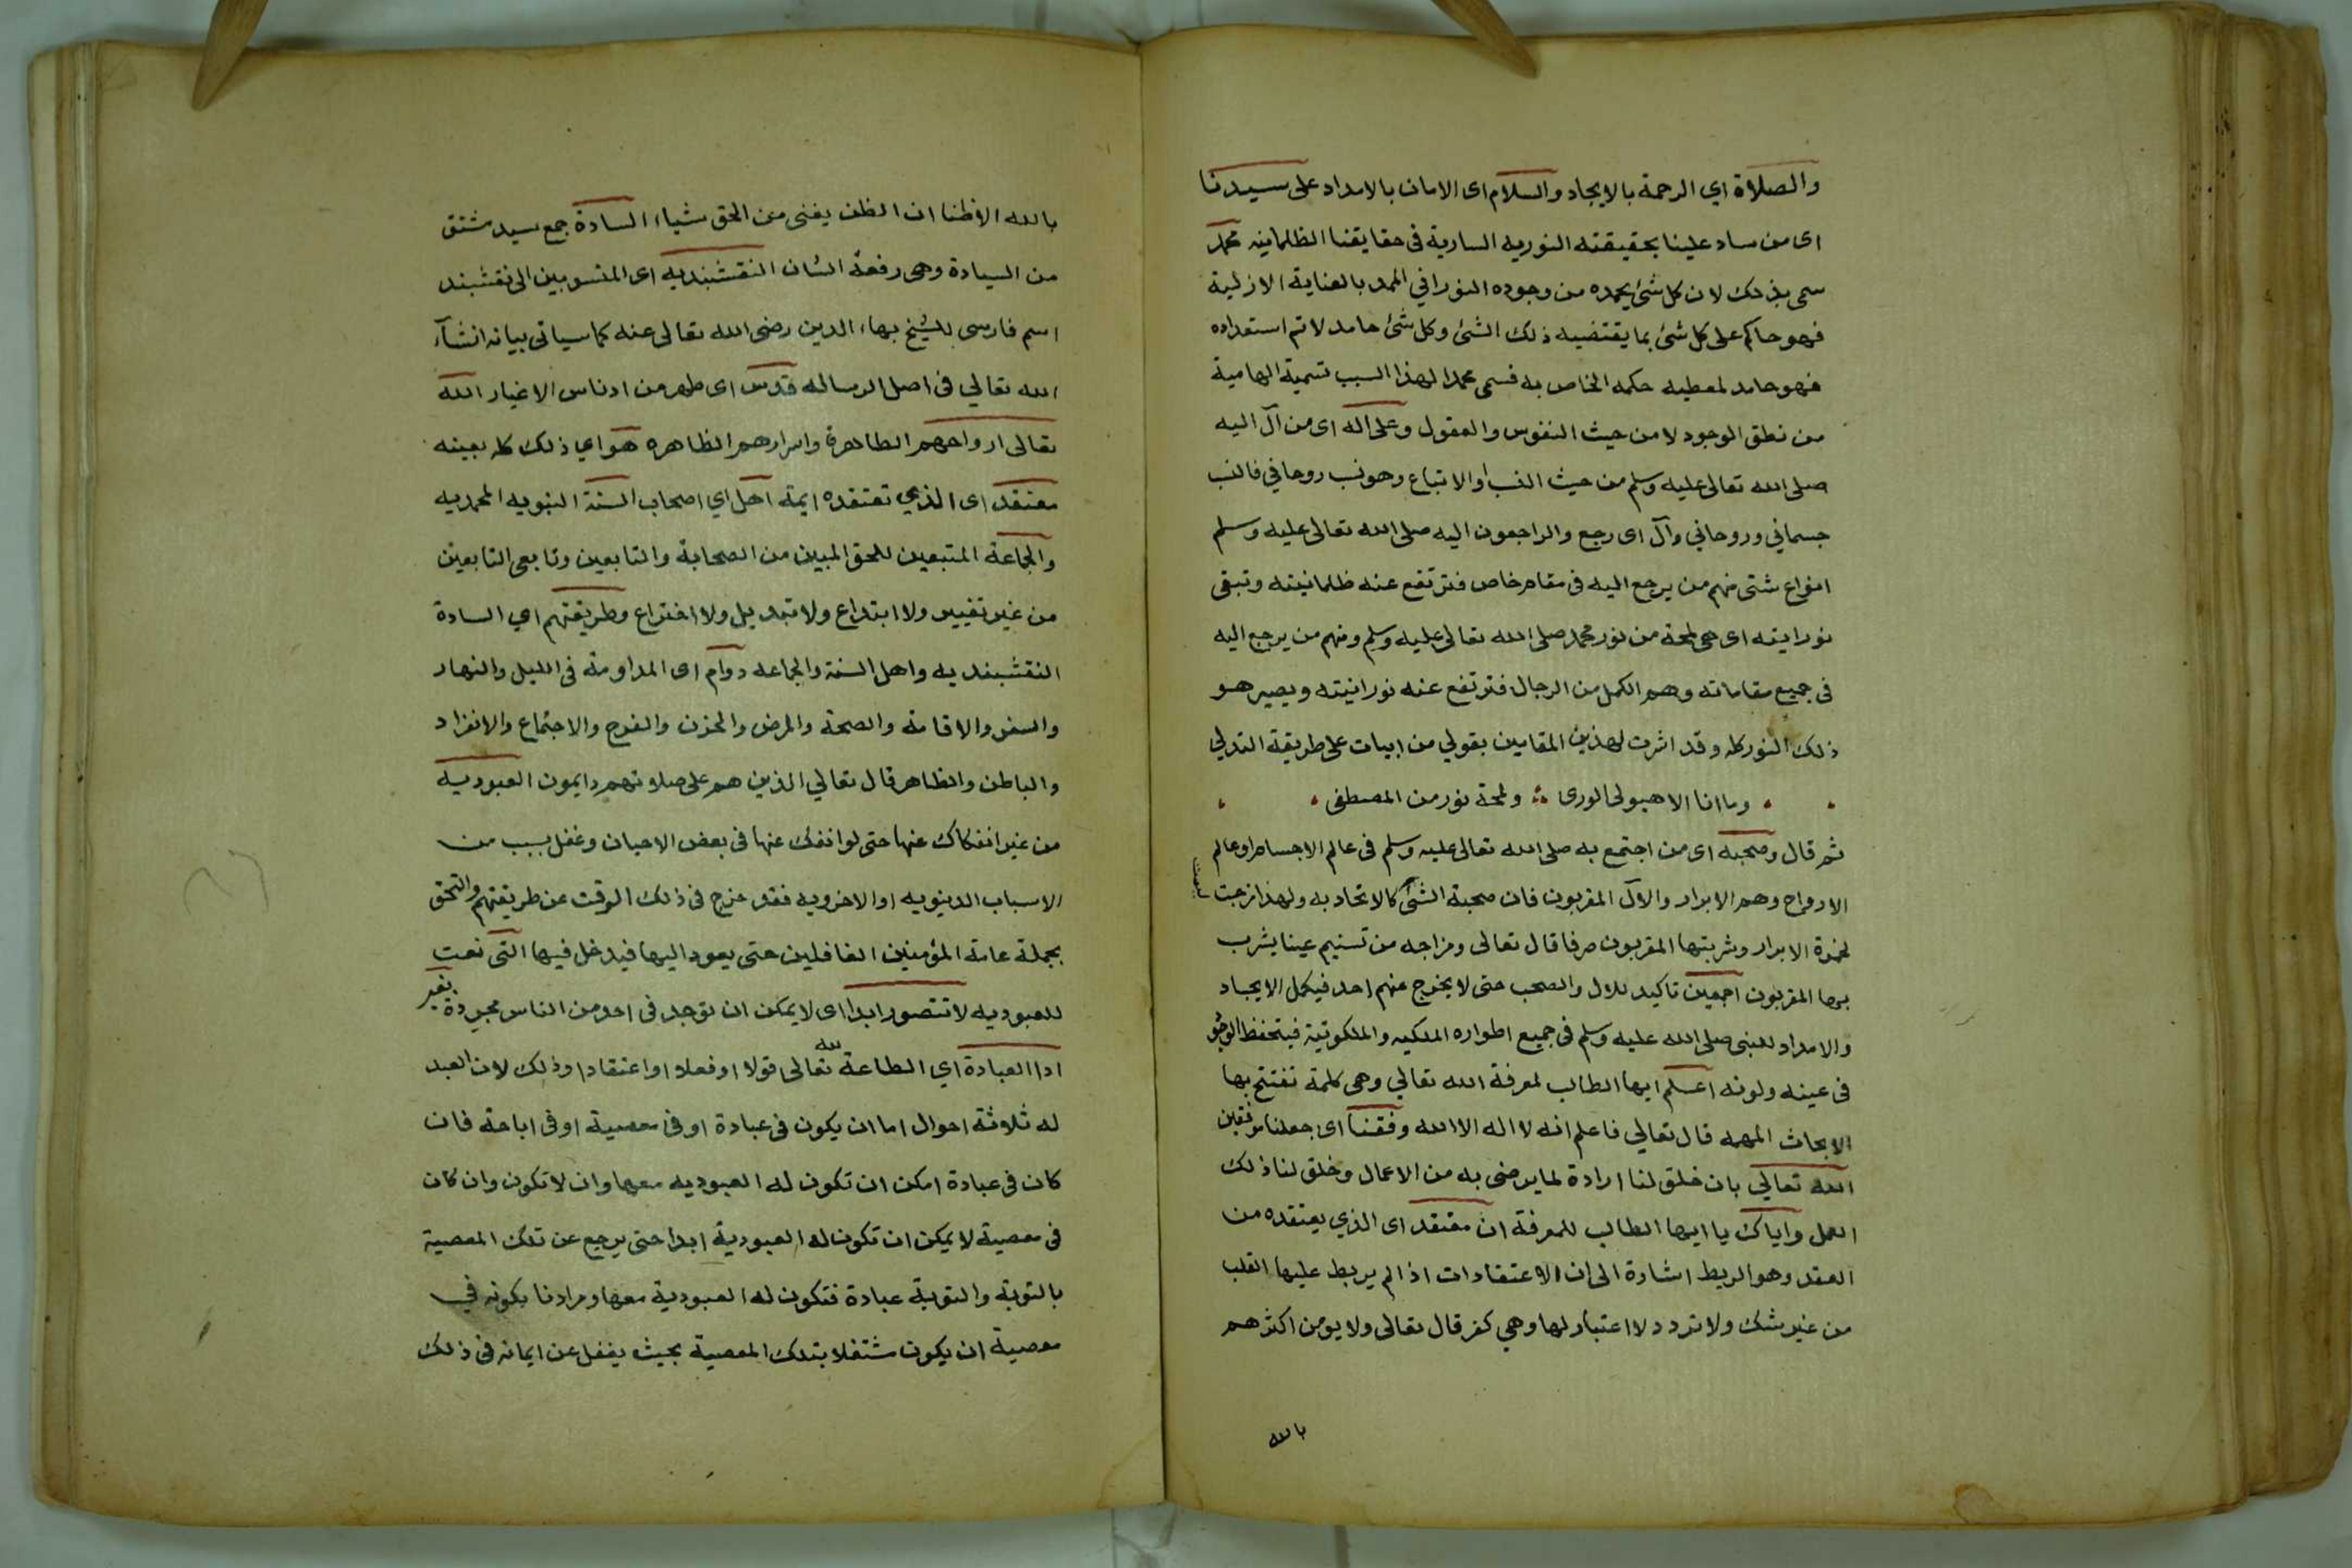 والصلاة اي الرحمة بالايجاد والسلام اى الامان بالامداد على سيدنا
اى من ساد علينا بحقيقته النوريه السارية فى حقايقنا الظلمانيه محمد
سمى بذلك لان كل شئ يحمده من وجوده النوراني الممد بالعناية الازلية
فهو حاكم على كل شئ بما يقتضيه ذلك الشئ وكل شئ حامد لاتم استعداده
فهو حامد لمعطيه حكمه الخاص به فسمى محمدا لهذا السبب تسمية الهامية
من نطق الوجود لا من حيث النفوس والعقول وعلى اله اى من آل اليه
صلى الله تعالى عليه وسلم من حيث النسب او الاتباع وهو نسب روحاني فالنسب
جسماني وروحاني وآل اى رجع والراجعون اليه صلى الله تعالى عليه وسلم
انواع شتى منهم من يرجع اليه فى مقام خاص فترتفع عنه ظلمانيته وتبقى
نورانيته اى هى لمحة من نور محمد صلى الله تعالى عليه وسلم ومنهم من يرجع اليه
فى جميع مقاماته وهم الكمل من الرجال فترتفع عنه نورانيته ويصير هو
ذلك النور كله وقد اشرت لهذين المقامين بقولي من ابيات على طريقة التدلي
وما انا الا هيولى الورى ولمحة نور من المصطفى
ثم قال وصحبه اى من اجتمع به صلى الله تعالى عليه وسلم فى عالم الاجسام او عالم
الارواح وهم الابرار والال المقربون فان صحبة الشئ كالاتحاد به ولهذا مزجت
لخمرة الابرار وشربتها المقربون صرفا قال تعالى ومزاجه من تسنيم عينا يشرب
بها المقربون اجمعين تاكيد للال والصحب حتى لا يخرج منهم احد فيكمل الايجاد
والامداد للنبى صلى الله عليه وسلم فى جميع اطواره الملكيه والملكوتية فيتحفظ
فى عينه ولونه اعلم ايها الطالب لمعرفة الله تعالي وهى كلمة تفتتح بها
الابحاث المهمه قال تعالي فاعلم انه لا اله الا الله وفقنا اى جعلنا موفقين
الله تعالي بان خلق لنا ارادة لما يرضى به من الاعمال وخلق لنا ذلك
العمل واياك يا ايها الطالب للمعرفة ان معتقد اى الذي يعتقده من
العقد وهو الربط اشارة الى ان الاعتقادات اذا لم يربط عليها القلب
من غير شك ولا تردد لا اعتبار لها وهى كفر قال تعالى ولا يومن اكثرهم
بالله
بالله الا ظنا ان الظن يغنى من الحق شياء السادة جمع سيد مشتق
من السيادة وهى رفعة الشان النقشبنديه اى المنسوبين الى نقشبند
اسم فارسى للشيخ بهاء الدين رضى الله تعالى عنه كما سياتى بيانه انشآء
الله تعالي فى اصل الرساله قدس اى طهر من ادناس الاغيار الله
تعالى ارواحهم الطاهرة واسرارهم الظاهره هو اي ذلك كله بعينه
معتقد اى الذي تعتقده ايمة اهل اي اصحاب السنة النبويه المحمديه
والجماعة المتبعين للحق المبين من الصحابة والتابعين وتابعى التابعين
من غير تغيير ولا ابتداع ولا تبديل ولا اختراع وطريقتهم اي السادة
النقشبنديه واهل السنة والجماعه دوام اى المداومة فى الليل والنهار
والسفر والاقامة والصحة والمرض والحزن والفرح والاجتماع والانفراد
والباطن والظاهر قال تعالي الذين هم على صلاتهم دايمون العبودية
من غير انفكاك عنها حتى لو انفك عنها فى بعض الاحيان وغفل بسبب من
الاسباب الدنيويه او الاخرويه فقد خرج فى ذلك الوقت عن طريقتهم والتحق
بجملة عامة المؤمنين الغافلين حتى يعود اليها فيدخل فيها التى نعت
للعبوديه لا تتصور ابدا اى لا يمكن ان توجد فى احد من الناس مجردة بغير
ادا العبادة اي الطاعة لله تعالى قولا او فعلا او اعتقادا وذلك لان العبد
له ثلاثة احوال اما ان يكون فى عبادة او فى معصية او فى اباحة فان
كان فى عبادة امكن ان تكون له العبوديه معها وان لا تكون وان كان
فى معصية لا يمكن ان تكون له العبودية ابدا حتى يرجع عن تلك المعصية
بالتوبة والتوبة عبادة فتكون له العبودية معها ومرادنا بكونه في
معصية ان يكون مشتغلا بتلك المعصية بحيث يغفل عن ايمانه فى ذلك